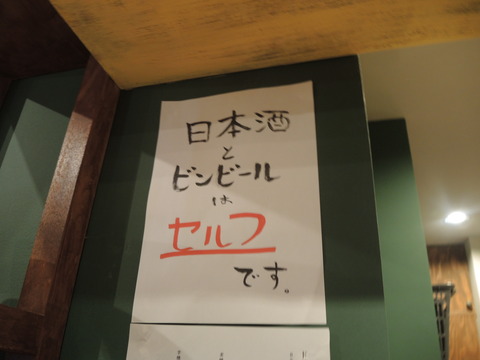 日本酒
と
ビンビール
は
セルフ
です。